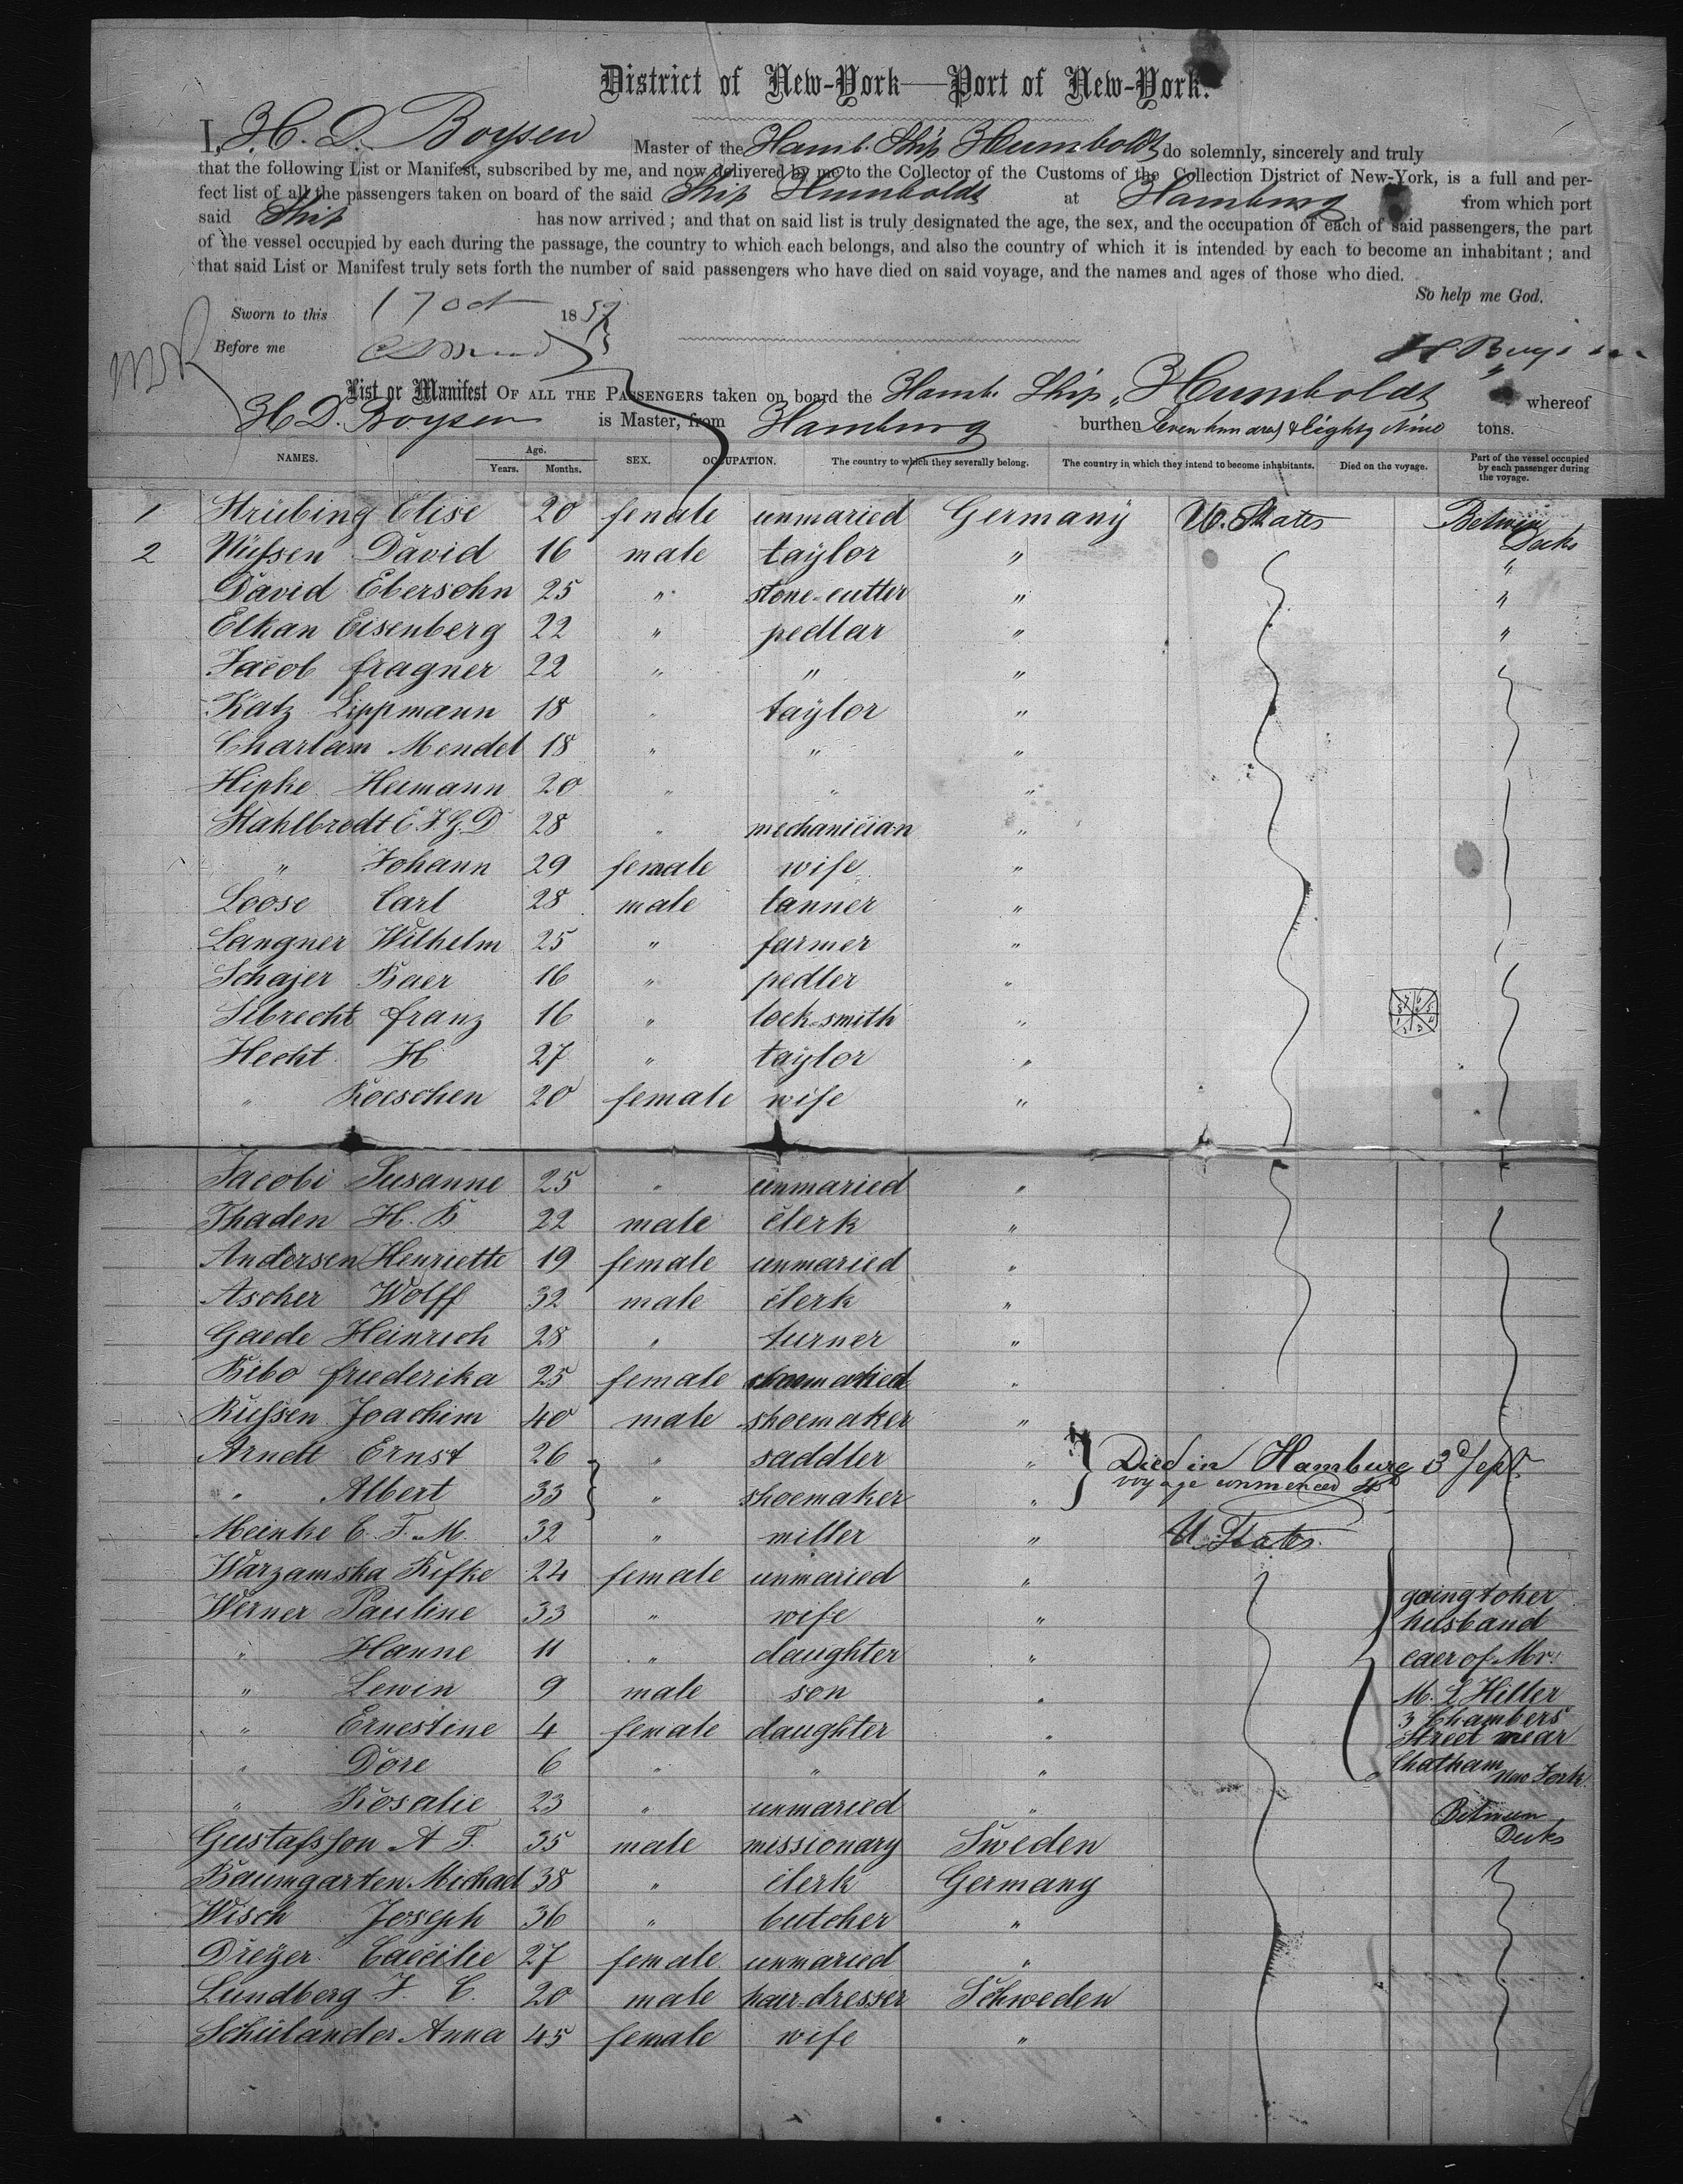 District of New-York—Port of New-York.
I, H. D. Boysen Master of the Hamb. Ship Humboldt do solemnly, sincerely and truly
that the following List or Manifest, subscribed by me, and now delivered by me to the Collector of the Customs of the Collection District of New-York, is a full and per-
fect list of all the passengers taken on board of the said Ship Humboldt at Hamburg from which port
said Ship has now arrived; and that on said list is truly designated the age, the sex, and the occupation of each of said passengers, the part
of the vessel occupied by each during the passage, the country to which each belongs, and also the country of which it is intended by each to become an inhabitant; and
that said List or Manifest truly sets forth the number of said passengers who have died on said voyage, and the names and ages of those who died.
So help me God.
Sworn to this 17 Oct 1859
Before me
List or Manifest OF ALL THE PASSENGERS taken on board the Hamb. Ship „Humboldt" whereof
H D. Boysen is Master, from Hamburg burthen Seven hundred & Eighty Nine tons.
NAMES. Age. Years. Months. SEX. OCCUPATION. The country to which they severally belong. The country in which they intend to become inhabitants. Died on the voyage. Part of the vessel occupied by each passenger during the voyage.
1 Strübing Elise 20 female unmaried Germany U. States Betwen Decks
2 David 16 male taylor " "
David Ebersohn 25 " stone-cutter " "
Elkan Eisenberg 22 " pedlar " "
Jacob fragner 22 " " "
Katz Lippmann 18 " taylor "
Charlam Mendel 18 " " "
Hipke Hermann 20 " " "
Stahlbrodt C J. G. D 28 " mechanician "
" Johann 29 female wife "
Loose Carl 28 male tanner "
Langner Wilhelm 25 " farmer "
Schajer Baer 16 " pedler "
franz 16 " lock-smith "
Hecht H 27 " taylor "
" Roeschen 20 female wife "
Jacobi Susanne 25 " unmaried "
Thaden H. B 22 male clerk "
Andersen Henriette 19 female unmaried "
Ascher Wolff 32 male clerk "
Gaede Heinrich 28 " turner "
Bibo friederika 25 female "
Joachim 40 male shoemaker "
Arndt Ernst 26 " saddler " Died in Hamburg 3d Sept.
" Albert 33 " shoemaker " voyage commenced 4th
Meinke C. F. M. 32 " miller " U. States
Warzamska Rifke 24 female unmaried "
Werner Pauline 33 " wife " going to her husband
" Hanne 11 " daughter " caer of Mr.
" Lewin 9 male son " M. L Hiller
" Ernestine 4 female daughter " 3 Chambers Street near
" Dore 6 " " " Chatham New York.
" Rosalie 23 " unmaried " Betwen Decks
Gustafsson A F. 35 male missionary Sweden
Baumgarten Michael 38 " clerk Germany
Wisch Joseph 36 " butcher "
Dreyer Caecilie 27 female unmaried "
Lundberg J. C. 20 male hair-dresser Schweden
Schülander Anna 45 female wife "